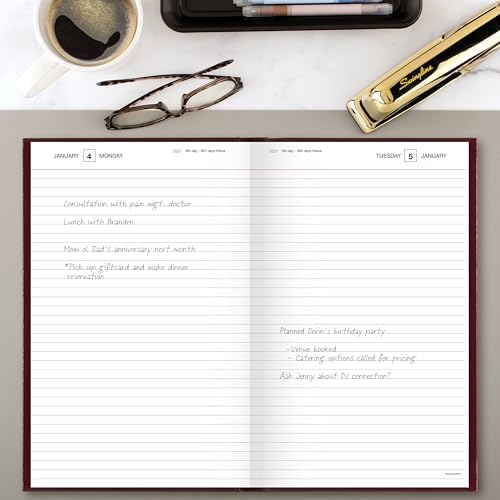 Swingline
JANUARY 4 MONDAY
2021 4th day - 361 days follow
Consultation with pain mgt. doctor
Lunch with Branden
Mom & Dad's anniversary next month
*Pick up giftcard and make dinner
reservation
2021 5th day - 360 days follow
TUESDAY 5 JANUARY
Planned Devin's birthday party
-Venue booked
- Catering options called for pricing
Ask Jenny about DJ connection?